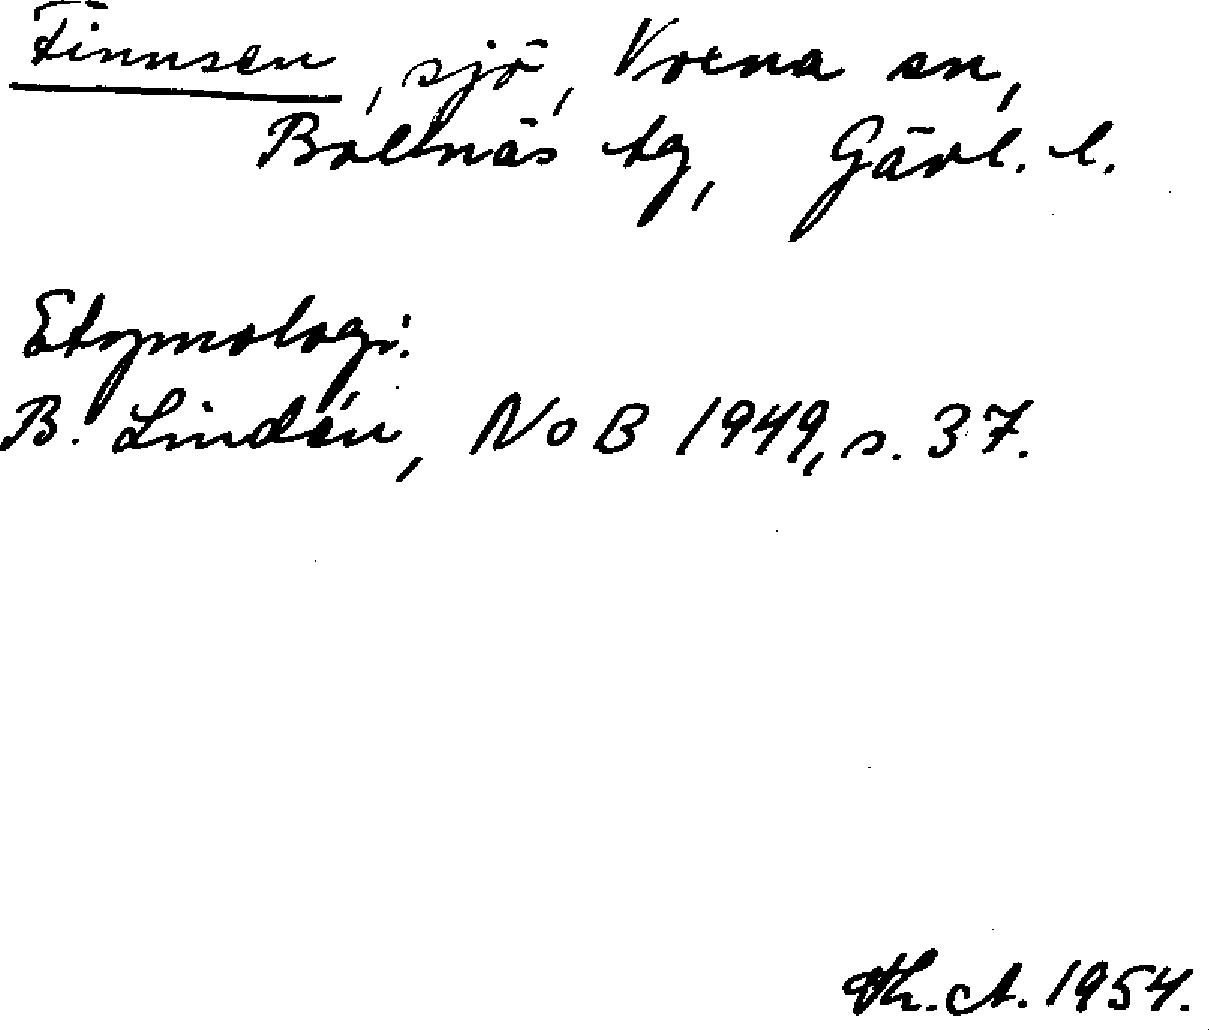 Finnsen, sjö, Voxna sn,
Bollnäs tg, Gävl. l.
Etymologi:
B. Lindén, NoB 1949, s. 37.
Th. A. 1954.